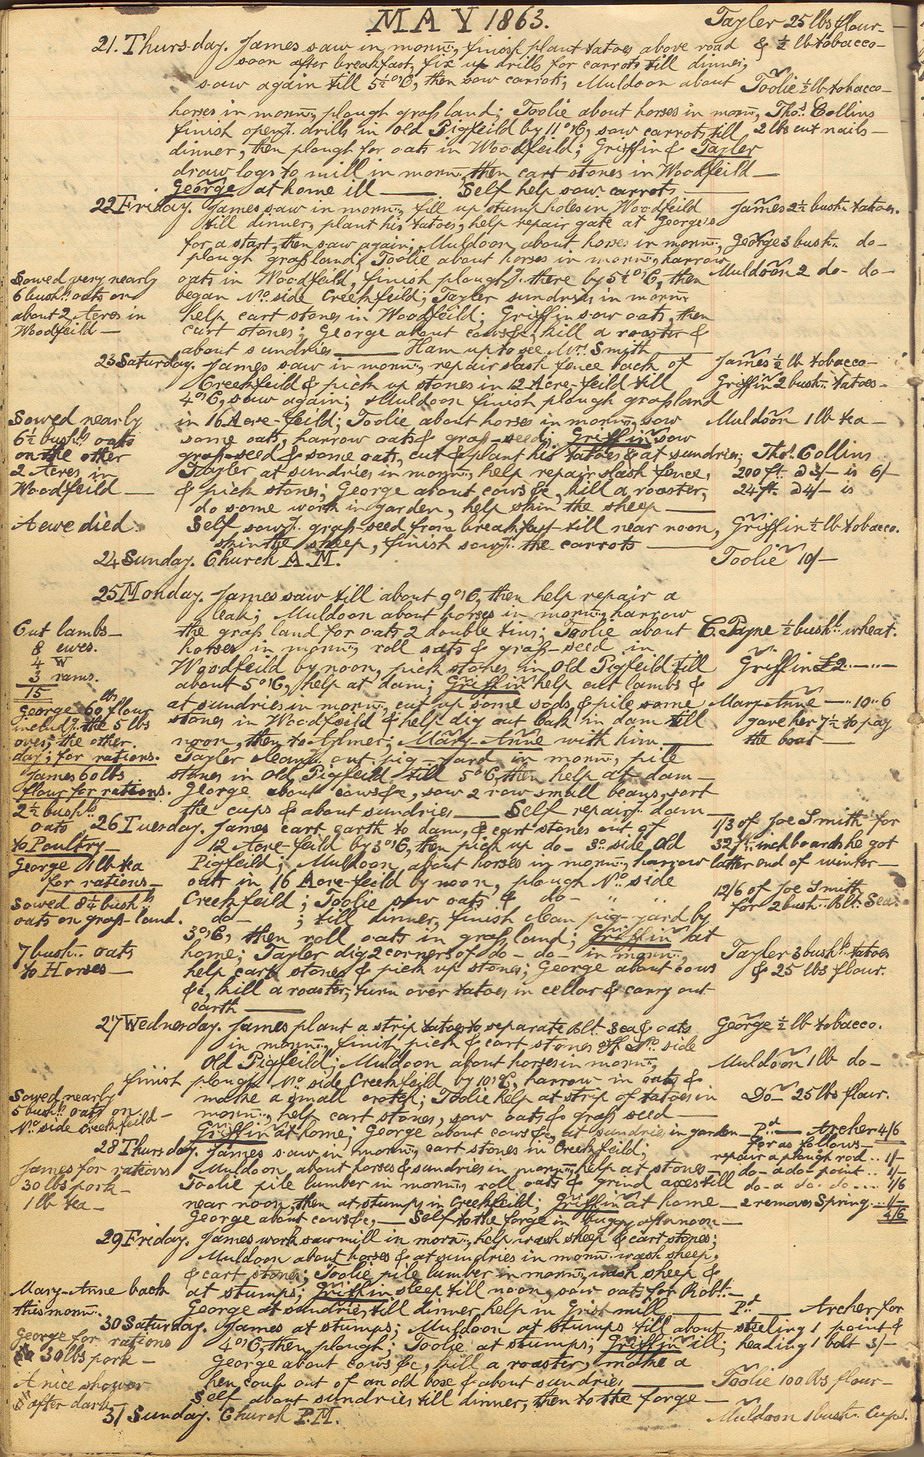 MAY 1863.
Tayler 25 lbs flour
& ½ lb tobacco
21. Thursday. James saw in mornᵍ, finish plant tatoes above road
soon after breakfast, fix up drills for carrots till dinner,
saw again till 5½ o'C, then sow carrots; Muldoon about
Toolie ½ lb tobacco
horses in mornᵍ, plough grass land; Toolie about horses in mornᵍ,
Thoˢ. Collins
finish openᵍ. drills in Old Pigfeild by 11 o'C, sow carrots till
2 lbs cut nails
dinner, then plough for oats in Woodfeild; Griffin & Tayler
draw logs to mill in mornᵍ, then cart stones in Woodfeild
George at home ill — Self help sow carrots
22 Friday. James saw in mornᵍ, fill up stump holes in Woodfeild
James 2½ bush. tatoes.
till dinner, plant his tatoes, help repair gate at George's
for a start, then saw again; Muldoon about horses in mornᵍ,
George 3 bush. do-
plough grass land; Toolie about horses in mornᵍ, harrow
Sowed very nearly
6 bushˡˢ oats on
about 2 Acres in
Woodfeild —
oats in Woodfeild, finish ploughᵍ. there by 5½ o'C, then
Muldoon 2 do- do-
began Nº. side Creekfeild; Tayler sundries in mornᵍ
help cart stones in Woodfeild; Griffin sow oats, then
cart stones; George about cows &c, kill a roaster &
about sundries — Ham up to see Wᵐ. Smith
23 Saturday. James saw in mornᵍ, repair slash fence back of
James ½ lb tobacco
Creekfeild & pick up stones in 12 Acre-feild till
Griffin 2 bush. tatoes
4 o'C, saw again; Muldoon finish plough grass land
Sowed nearly
6½ bushˡˢ oats
on the other
2 Acres in
Woodfeild —
in 16 Acre-feild; Toolie about horses in mornᵍ, sow
Muldoon 1 lb tea
some oats, harrow oats & grass-seed; Griffin sow
grass-seed & some oats, cut & plant his tatoes & at sundries;
Thoˢ. Collins
Tayler at sundries in mornᵍ, help repair slash fence,
200 ft. @ 3/- is 6/
& pick stones; George about cows &c, kill a roaster,
24 ft. @ 4/- is
do some work in garden, help skin the sheep —
A ewe died
Self sowᵍ. grass-seed from breakfast till near noon,
Griffin ½ lb tobacco.
skin the sheep, finish sowᵍ. the carrots
24 Sunday. Church A.M.
Toolie 10/-
25 Monday. James saw till about 9 o'C, then help repair a
leak; Muldoon about horses in mornᵍ, harrow
Cut lambs
8 ewes.
4 W
3 rams.
15
the grass land for oats 2 double tins; Toolie about
C. Payne ½ bushˡ. wheat.
horses in mornᵍ, roll oats & grass-seed in
Woodfeild by noon, pick stones in Old Pigfeild till
Griffin £2 —
about 5 o'C, help at dam; Griffin help cut lambs &
at sundries in mornᵍ, cut up some sods & pile some
Mary-Anne — 10..6
George 60 flour
includᵍ. the 5 lbs
over, the other
day, for rations.
stones in Woodfeild & help dig out bank in dam till
gave her 7½ to pay
the boat
noon, then to Aylmer; Mary-Anne with him.
Tayler cleanᵍ. out pig-yard in mornᵍ, pile
James 60 lbs
flour for rations.
stones in Old Pigfeild till 5 o'C, then help at dam
George about cows &c, sow 2 row small beans, sort
2½ bushˡˢ
oats
to Poultry
the cups & about sundries — Self repairᵍ. dam
26 Tuesday. James cart earth to dam, & cart stones out of
1/3 of Joe Smith for
12 Acre-feild by 3 o'C, then pick up do- Sº. side Old
32 ft. inch boards he got
Pigfeild; Muldoon, about horses in mornᵍ, harrow
latter end of winter
George 1 lb tea
for rations
oats in 16 Acre-feild by noon, plough Nº. side
Sowed 8½ bushˡˢ
oats on grass-land.
Creekfeild; Toolie sow oats & do- " "
12/6 of Joe Smith
for 2 bush. Blk. Sea.
do- ; till dinner, finish clean pig-yard by
3 o'C, then roll oats in grass land; Griffin at
7 bush. oats
to Horses —
home; Tayler dig 2 corners of do- do- in mornᵍ,
Tayler 3 bushˡˢ tatoes
& 25 lbs flour.
help cart stones & pick up stones; George about cows
&c, kill a roaster, turn over tatoes in cellar & carry out
earth
27 Wednesday. James plant a strip tatoes to separate Blk. Sea & oats
George ½ lb tobacco.
in mornᵍ, finish pick & cart stones off Nº. side
Old Pigfeild; Muldoon about horses in mornᵍ,
Muldoon 1 lb do-
finish plough Nº. side Creekfeild by 10 o'C, harrow in oats &
Sowed nearly
5 bushˡˢ oats on
Nº. side Creekfeild
make a small crotch; Toolie help at strip of tatoes in
Do- 25 lbs flour.
mornᵍ, help cart stones, sow oats & grass seed
Griffin at home; George about cows &c, at sundries in garden
Pᵈ. — Archer 4/6
for as follows—
28 Thursday. James saw in mornᵍ, cart stones in Creekfeild;
repair a plough rod .. 1/-
James for rations
30 lbs pork
1 lb tea
Muldoon about horses & sundries in mornᵍ, help at stones
do- a do- point .. 1/-
Toolie pile lumber in mornᵍ, roll oats & grind axes till
do- a do- do- ... 1/6
near noon, then at stumps in Creekfeild; Griffin at home
2 removes, Spring .. 1/-
4/6
George about cows &c, — Self to the forge in buggy afternoon
29 Friday. James work sawmill in mornᵍ, help wash sheep & cart stones;
Muldoon about horses & at sundries in mornᵍ, wash sheep,
& cart stones; Toolie pile lumber in mornᵍ, wash sheep &
Mary-Anne back
this mornᵍ.
at stumps; Griffin sleep till noon, sow oats for Robt.
George at sundries till dinner, help in Grist mill
Pᵈ. — Archer for
30 Saturday. James at stumps; Muldoon at stumps till about
steeling 1 point &
George for rations
30 lbs pork
4 o'C, then plough; Toolie at stumps; Griffin ill;
heading 1 bolt 3/-
George about cows &c, kill a roaster, make a
A nice shower
after dark
hen coup out of an old box & about sundries
Toolie 100 lbs flour
Self about sundries till dinner, then to the forge
31 Sunday. Church P.M.
Muldoon 1 bush. Cups.